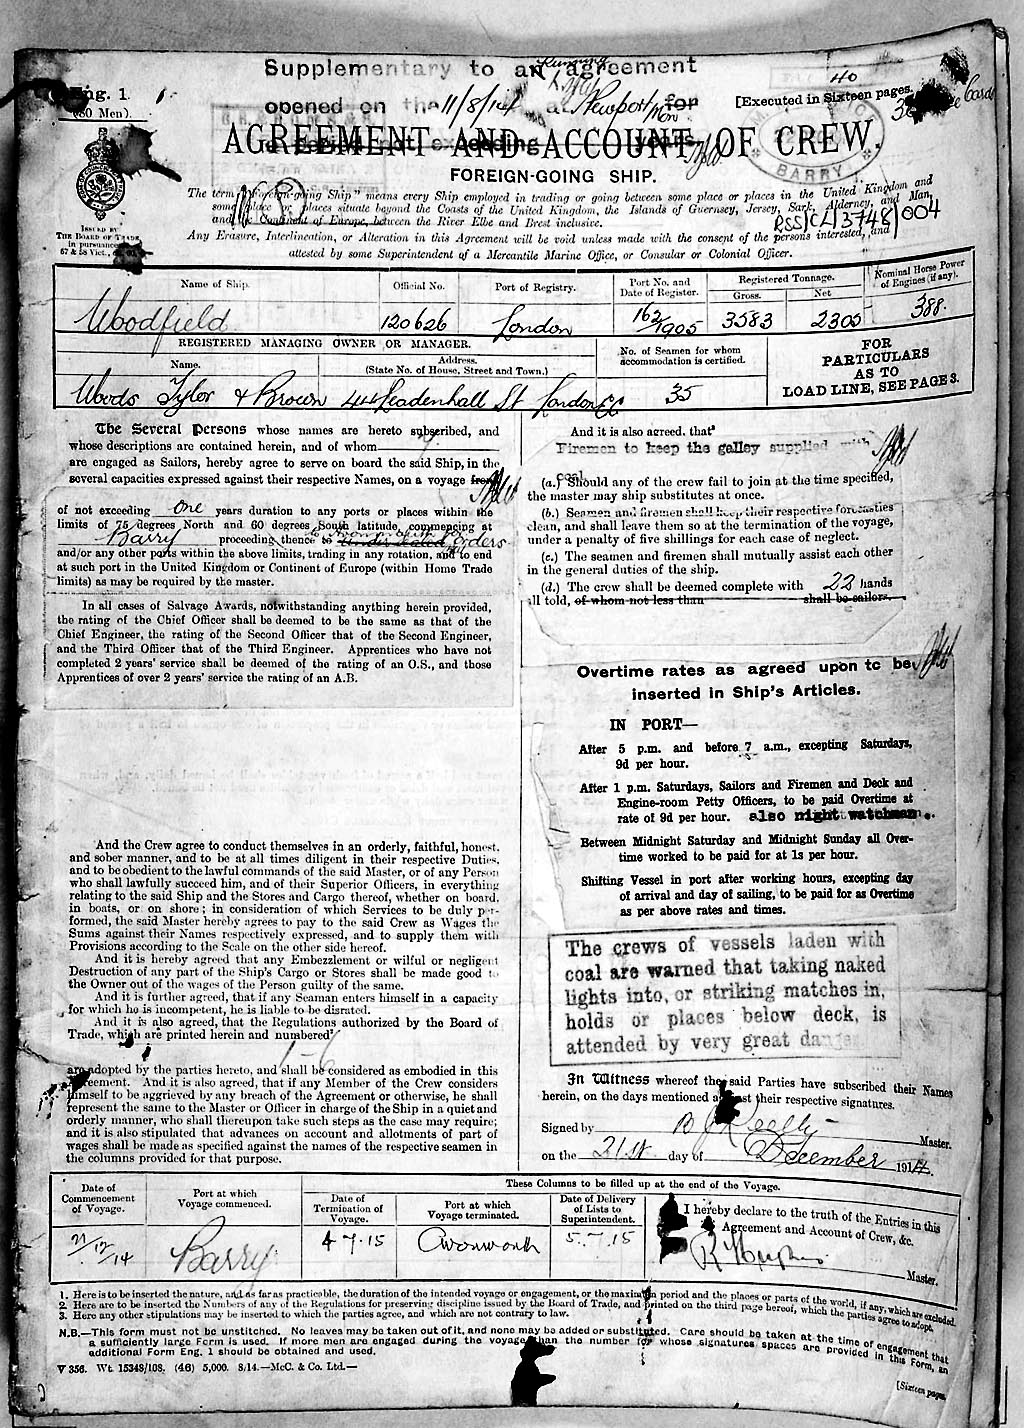 Supplementary to an agreement
opened on the 11/8/14 at Newport Mon for
[Executed in Sixteen pages.
40
Eng. 1
(80 Men).
AGREEMENT AND ACCOUNT OF CREW.
not exceeding
FOREIGN-GOING SHIP.
BARRY
The term "Foreign-going Ship" means every Ship employed in trading or going between some place or places in the United Kingdom and
some place or places situate beyond the Coasts of the United Kingdom, the Islands of Guernsey, Jersey, Sark, Alderney, and Man,
and the Continent of Europe, between the River Elbe and Brest inclusive.
RSS/CL/3748/004
Any Erasure, Interlineation, or Alteration in this Agreement will be void unless made with the consent of the persons interested, and
attested by some Superintendent of a Mercantile Marine Office, or Consular or Colonial Officer.
ISSUED BY
THE BOARD OF TRADE,
in pursuance
57 & 58 Vict.,
Name of Ship. Official No. Port of Registry. Port No. and Date of Register. Registered Tonnage. Gross. Net Nominal Horse Power of Engines (if any).
Woodfield 120626 London 162/1905 3583 2305 388.
REGISTERED MANAGING OWNER OR MANAGER.
Name. Address. (State No. of House, Street and Town.)
No. of Seamen for whom accommodation is certified.
FOR
PARTICULARS
AS TO
LOAD LINE, SEE PAGE 3.
Woods Tylor & Brown 44 Leadenhall St London EC 35
The Several Persons whose names are hereto subscribed, and
whose descriptions are contained herein, and of whom
are engaged as Sailors, hereby agree to serve on board the said Ship, in the
several capacities expressed against their respective Names, on a voyage from
of not exceeding one years duration to any ports or places within the
limits of 75 degrees North and 60 degrees South latitude, commencing at
Barry proceeding thence to Avonmouth for orders
and/or any other ports within the above limits, trading in any rotation, and to end
at such port in the United Kingdom or Continent of Europe (within Home Trade
limits) as may be required by the master.
In all cases of Salvage Awards, notwithstanding anything herein provided,
the rating of the Chief Officer shall be deemed to be the same as that of the
Chief Engineer, the rating of the Second Officer that of the Second Engineer,
and the Third Officer that of the Third Engineer. Apprentices who have not
completed 2 years' service shall be deemed of the rating of an O.S., and those
Apprentices of over 2 years' service the rating of an A.B.
And the Crew agree to conduct themselves in an orderly, faithful, honest,
and sober manner, and to be at all times diligent in their respective Duties,
and to be obedient to the lawful commands of the said Master, or of any Person
who shall lawfully succeed him, and of their Superior Officers, in everything
relating to the said Ship and the Stores and Cargo thereof, whether on board,
in boats, or on shore; in consideration of which Services to be duly per-
formed, the said Master hereby agrees to pay to the said Crew as Wages the
Sums against their Names respectively expressed, and to supply them with
Provisions according to the Scale on the other side hereof.
And it is hereby agreed that any Embezzlement or wilful or negligent
Destruction of any part of the Ship's Cargo or Stores shall be made good to
the Owner out of the wages of the Person guilty of the same.
And it is further agreed, that if any Seaman enters himself in a capacity
for which he is incompetent, he is liable to be disrated.
And it is also agreed, that the Regulations authorized by the Board of
Trade, which are printed herein and numbered²
1-6
are adopted by the parties hereto, and shall be considered as embodied in this
Agreement. And it is also agreed, that if any Member of the Crew considers
himself to be aggrieved by any breach of the Agreement or otherwise, he shall
represent the same to the Master or Officer in charge of the Ship in a quiet and
orderly manner, who shall thereupon take such steps as the case may require;
and it is also stipulated that advances on account and allotments of part of
wages shall be made as specified against the names of the respective seamen in
the columns provided for that purpose.
And it is also agreed, that³
Firemen to keep the galley supplied with
coal
(a.) Should any of the crew fail to join at the time specified,
the master may ship substitutes at once.
(b.) Seamen and firemen shall keep their respective forecastles
clean, and shall leave them so at the termination of the voyage,
under a penalty of five shillings for each case of neglect.
(c.) The seamen and firemen shall mutually assist each other
in the general duties of the ship.
(d.) The crew shall be deemed complete with 22 hands
all told, of whom not less than shall be sailors.
Overtime rates as agreed upon to be
inserted in Ship's Articles.
IN PORT—
After 5 p.m. and before 7 a.m., excepting Saturdays,
9d per hour.
After 1 p.m. Saturdays, Sailors and Firemen and Deck and
Engine-room Petty Officers, to be paid Overtime at
rate of 9d per hour. also night watchman.
Between Midnight Saturday and Midnight Sunday all Over-
time worked to be paid for at 1s per hour.
Shifting Vessel in port after working hours, excepting day
of arrival and day of sailing, to be paid for as Overtime
as per above rates and times.
The crews of vessels laden with
coal are warned that taking naked
lights into, or striking matches in,
holds or places below deck, is
attended by very great danger
In Witness whereof the said Parties have subscribed their Names
herein, on the days mentioned against their respective signatures.
Signed by Master.
on the 21st day of December 1914.
These Columns to be filled up at the end of the Voyage.
Date of Commencement of Voyage. Port at which Voyage commenced. Date of Termination of Voyage. Port at which Voyage terminated. Date of Delivery of Lists to Superintendent.
I hereby declare to the truth of the Entries in this
Agreement and Account of Crew, &c.
21/12/14 Barry 4 7.15 Avonmouth 5.7.15
R Hughes
Master.
1. Here is to be inserted the nature, and as far as practicable, the duration of the intended voyage or engagement, or the maximum period and the places or parts of the world, if any, which are excluded.
2. Here are to be inserted the Numbers of any of the Regulations for preserving discipline issued by the Board of Trade, and printed on the third page hereof, which the parties agree to adopt.
3. Here any other stipulations may be inserted to which the parties agree, and which are not contrary to law.
N.B.—This form must not be unstitched. No leaves may be taken out of it, and none may be added or substituted. Care should be taken at the time of engagement that
a sufficiently large Form is used. If more men are engaged during the voyage than the number for whose signatures spaces are provided in this Form, an
additional Form Eng. 1 should be obtained and used.
V 356. Wt. 15348/108. (46) 5,000. 8/14.—McC. & Co. Ltd.—
[Sixteen pages